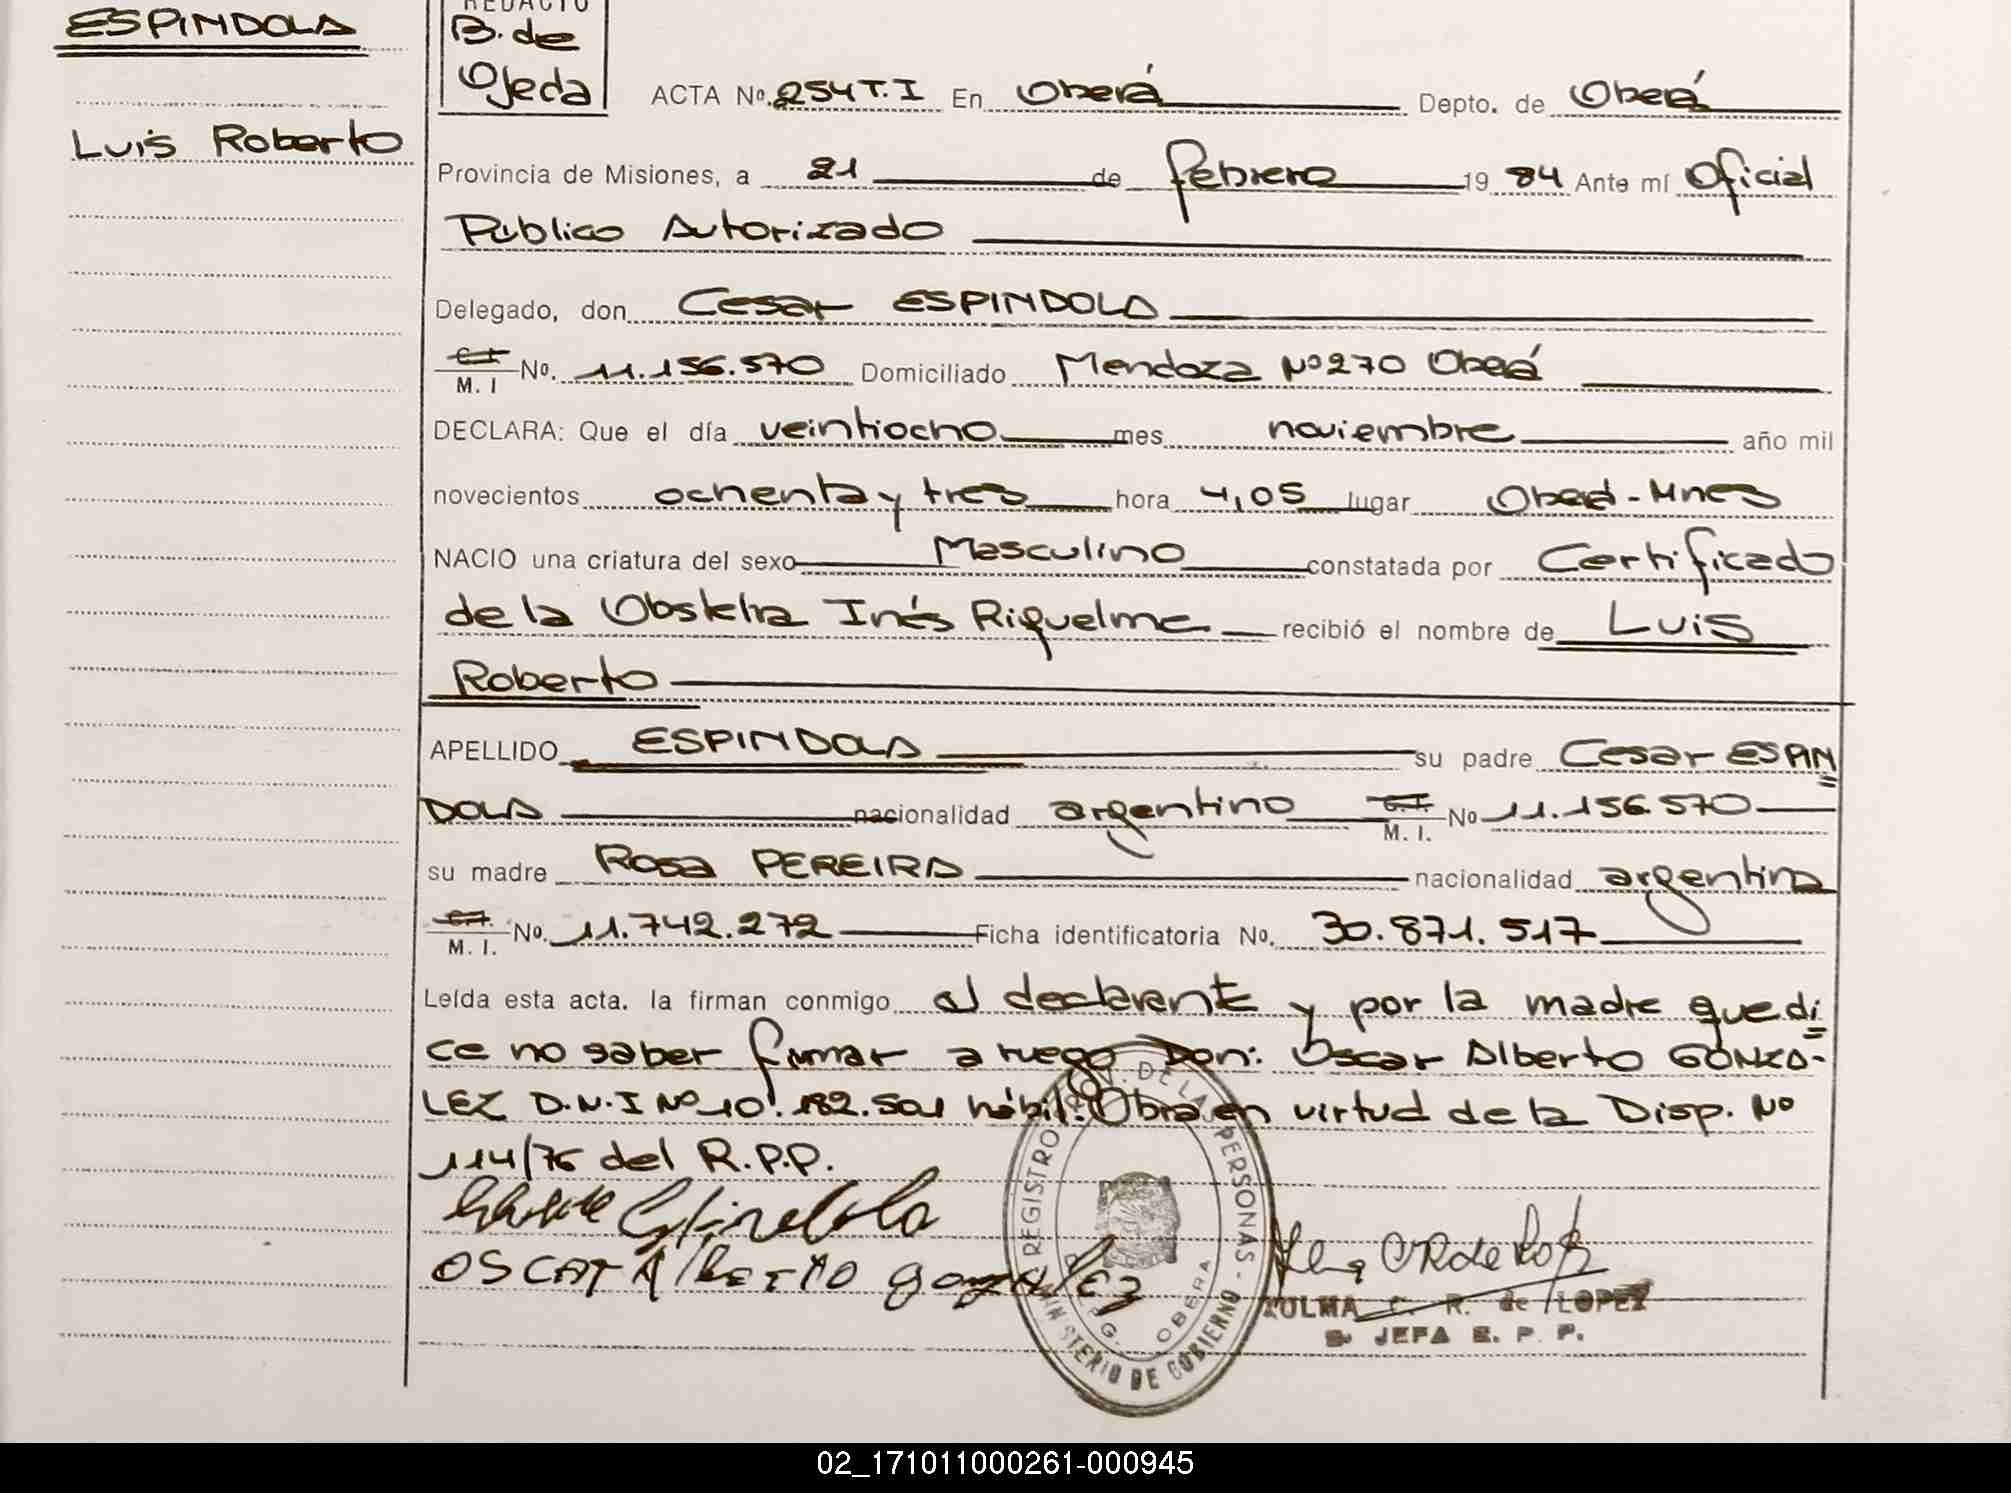 ESPINDOLA
Luis Roberto
REDACTO
B. de
Ojeda
ACTA Nº. 254 T. I En Oberá Depto. de Oberá
Provincia de Misiones, a 21 de febrero 19 84 Ante mí Oficial
Público Autorizado
Delegado, don Cesar ESPINDOLA
C. I. / M. I Nº. 11.156.570 Domiciliado Mendoza Nº 270 Oberá
DECLARA: Que el día veintiocho mes noviembre año mil
novecientos ochenta y tres hora 4,05 lugar Oberá - Mnes
NACIO una criatura del sexo Masculino constatada por Certificado
de la Obstetra Inés Riquelme recibió el nombre de Luis
Roberto
APELLIDO ESPINDOLA su padre Cesar ESPIN
DOLA nacionalidad argentino C. I. / M. I. Nº 11.156.570
su madre Rosa PEREIRA nacionalidad argentina
C. I. / M. I. Nº. 11.742.272 Ficha identificatoria Nº. 30.871.517
Leída esta acta. la firman conmigo el declarante y por la madre que di
ce no saber firmar a ruego Don: Oscar Alberto GONZA-
LEZ D.N.I Nº 10.182.501 hábil. Obra en virtud de la Disp. Nº
114/76 del R.P.P.
Espindola
OSCAR Alberto gonzalez
REGISTRO PROV. DE LAS PERSONAS - MINISTERIO DE GOBIERNO
DELEG. OBERA
ZULMA C. R. de LOPEZ
JEFA R. P. P.
02_171011000261-000945